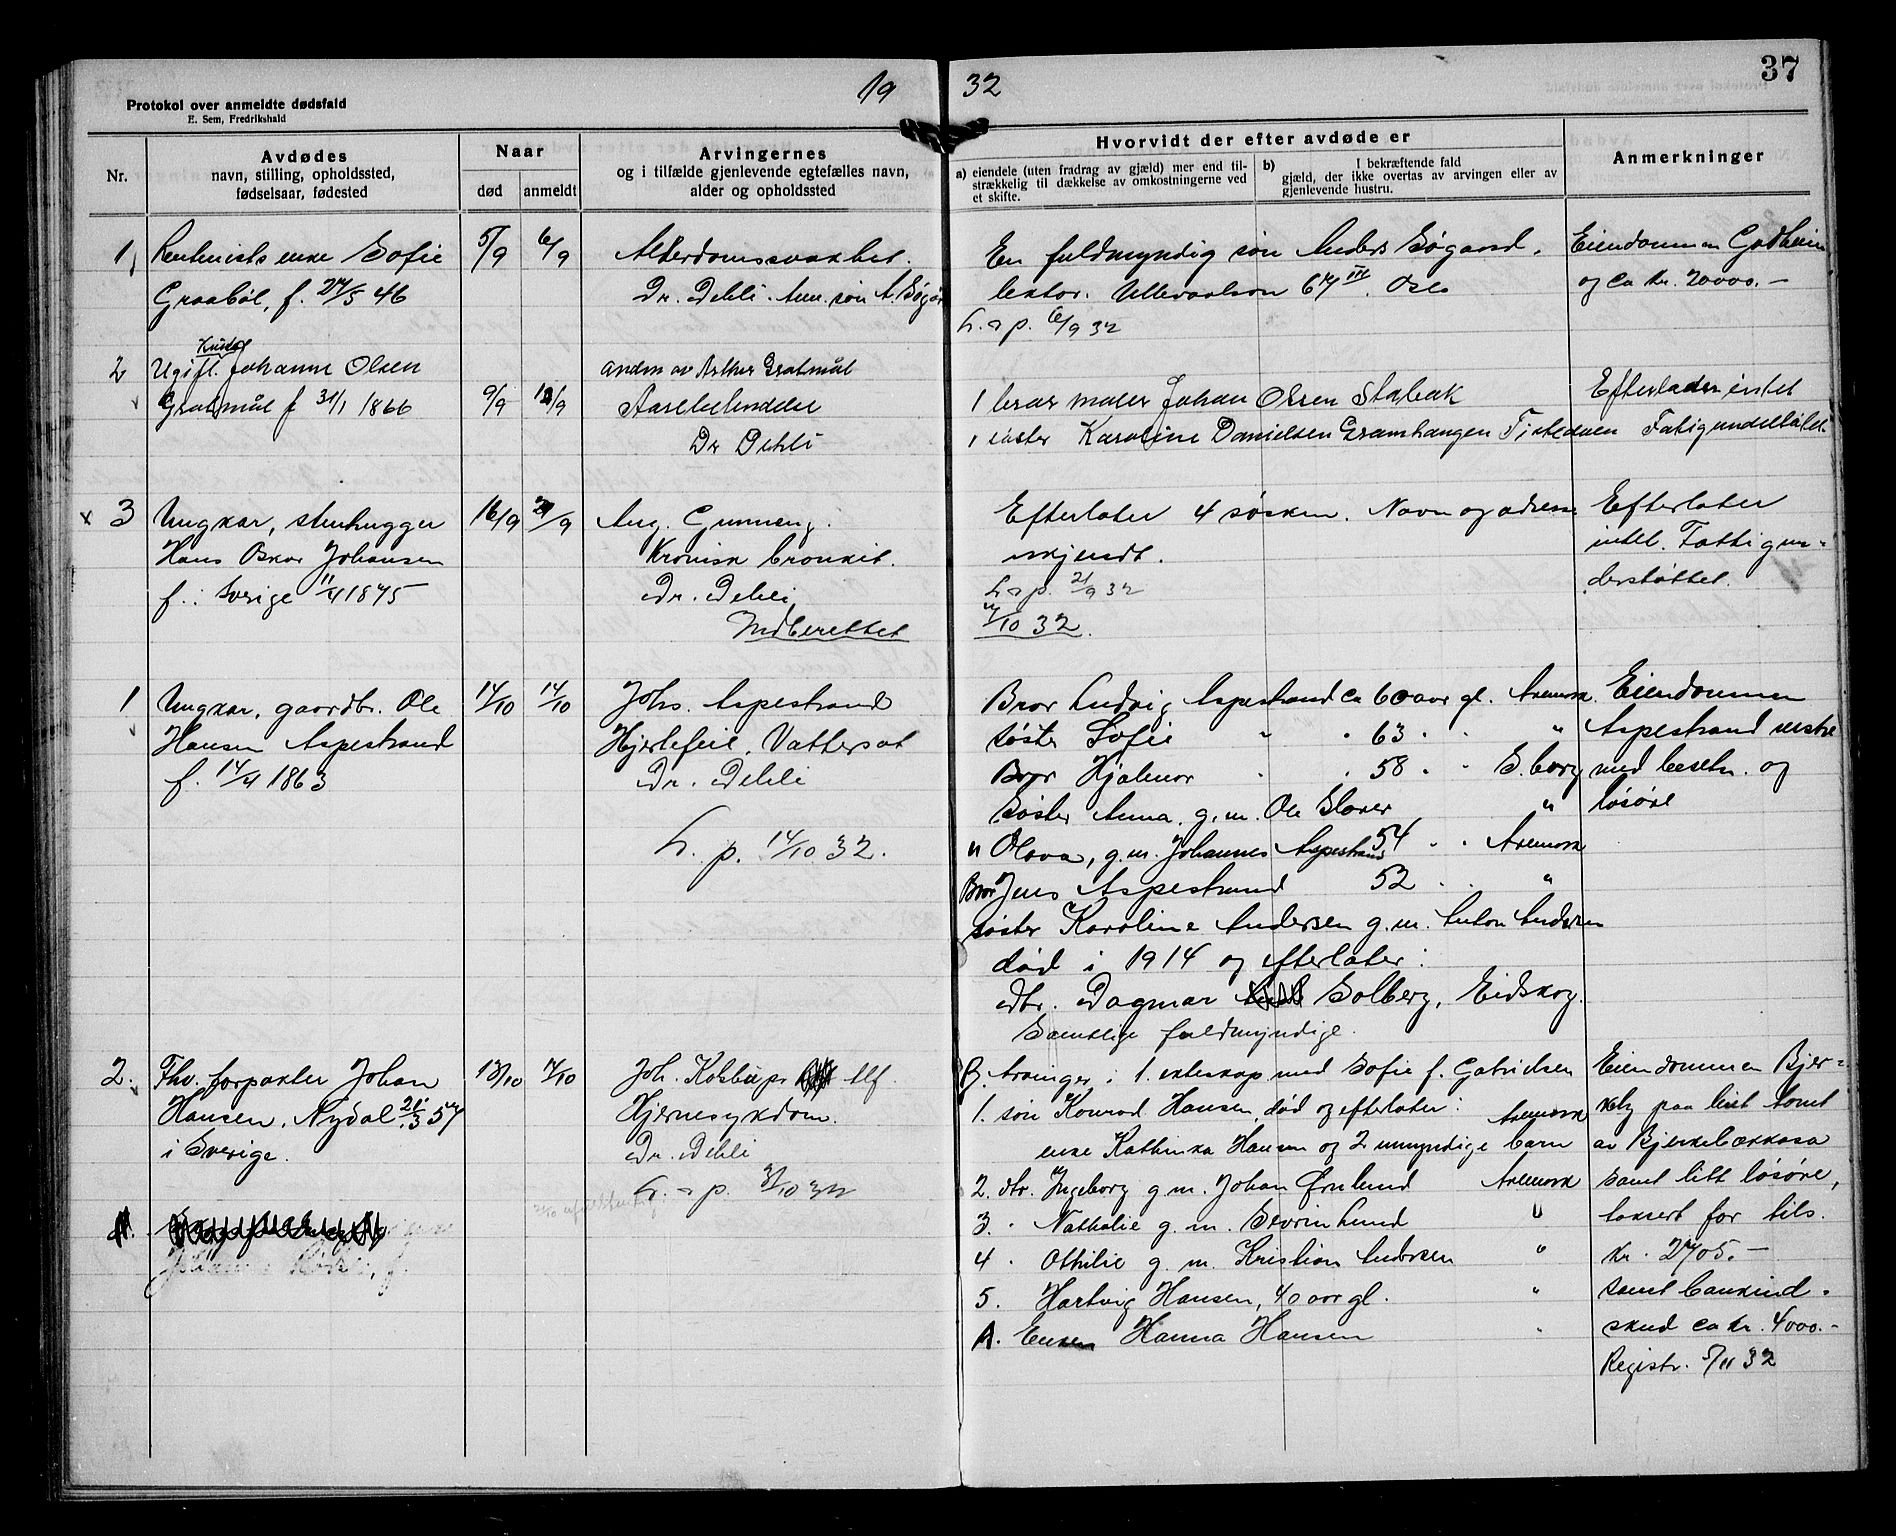 19 32
37
Protokol over anmeldte dødsfald
E. Sem, Fredrikshald
Nr.
Avdødes
navn, stilling, opholdssted,
fødselsaar, fødested
Naar
død anmeldt
Arvingernes
og i tilfælde gjenlevende egtefælles navn,
alder og opholdssted
Hvorvidt der efter avdøde er
a) eiendele (uten fradrag av gjæld) mer end til-
strækkelig til dækkelse av omkostningerne ved
et skifte.
b) I bekræftende fald
gjæld, der ikke overtas av arvingen eller av
gjenlevende hustru.
Anmerkninger
1, Rentenists enke Sofie
Graabøl, f. 27/5 46
5/9 6/9
Alderdomssvakhet.
Dr. Dehli. Anm. søn A. Søgård
En fuldmyndig søn Anders Søgaard,
lektor. Ullevaalsvn 67 III. Oslo
L. a p. 6/9 32
Eiendommen Godheim
og ca kr. 20000.-
2 Ugift Johanne Olsen
Gratmül f 31/1 1866
9/9
anden av Arthur Gratmül
Dr Dehli
1 bror maler Johan Olsen Stabæk
1 søster Karoline Danielsen Gramhaugen Tistedalen
Efterlader intet
Fatigunderstøttet
x 3 Ungkar, stenhugger
Hans Oskar Johansen
f. i Sverige 11/4 1875
16/9 21/9
Aug. Gunneng.
Kronisk bronkit.
Dr. Dehli
Indberettet
Efterlater 4 søsken. Navn og adresse
ukjendt.
L a p. 21/9 32
7/10 32.
Efterlater
intet. Fattigun-
derstøttet.
1 Ungkar, gaardbr. Ole
Hansen Aspestrand
f. 14/4 1863
14/10 14/10
Johs. Aspestrand
Hjertefeil. Vattersot
Dr. Dehli
L. p. 14/10 32.
Bror Ludvig Aspestrand ca 60 aar gl. Aremark
søster Sofie " " 63 " " "
Bror Hjalmar " " 58 " " S.borg
Søster Anna, g. m. Ole "
" Olava, g. m. Johannes Aspestrand 54 " " Aremark
Bror Jens Aspestrand 52 " "
søster Karoline Andersen g. m. Anton Andersen
død i 1914 og efterlater:
dtr. Dagmar Solberg, Eidskog.
Samtlige fuldmyndige.
Eiendommen
Aspestrand vestre
med besetn. og
løsøre
2. Fhv. forpakter Johan
Hansen, Nydal 21/3 57
i Sverige.
13/10 17/10
Joh. Kolstrup tlf.
Hjernesykdom.
Dr. Dehli
L. a p. 31/10 32
B. Arvinger i 1. ekteskap med Sofie f. Gabrielsen
1. søn Konrad Hansen, død og efterlater: Aremark
enke Kathinka Hansen og 2 umyndige barn
2. dtr. Ingeborg g. m. Johan Ørnlund Aremark
3 " Nathalie g. m. Sevrin Lund "
4 " Othilie g. m. Kristian Andersen "
5. Hartvig Hansen, 40 aar gl. "
A. Enken Hanna Hansen "
Eiendommen Bjer-
kely paa leiet tomt
av Bjerkebækkasa
samt litt løsøre,
taksert for tils.
kr. 2705.-
samt bankind-
skud ca kr. 4000.-
Registr. 5/11 32